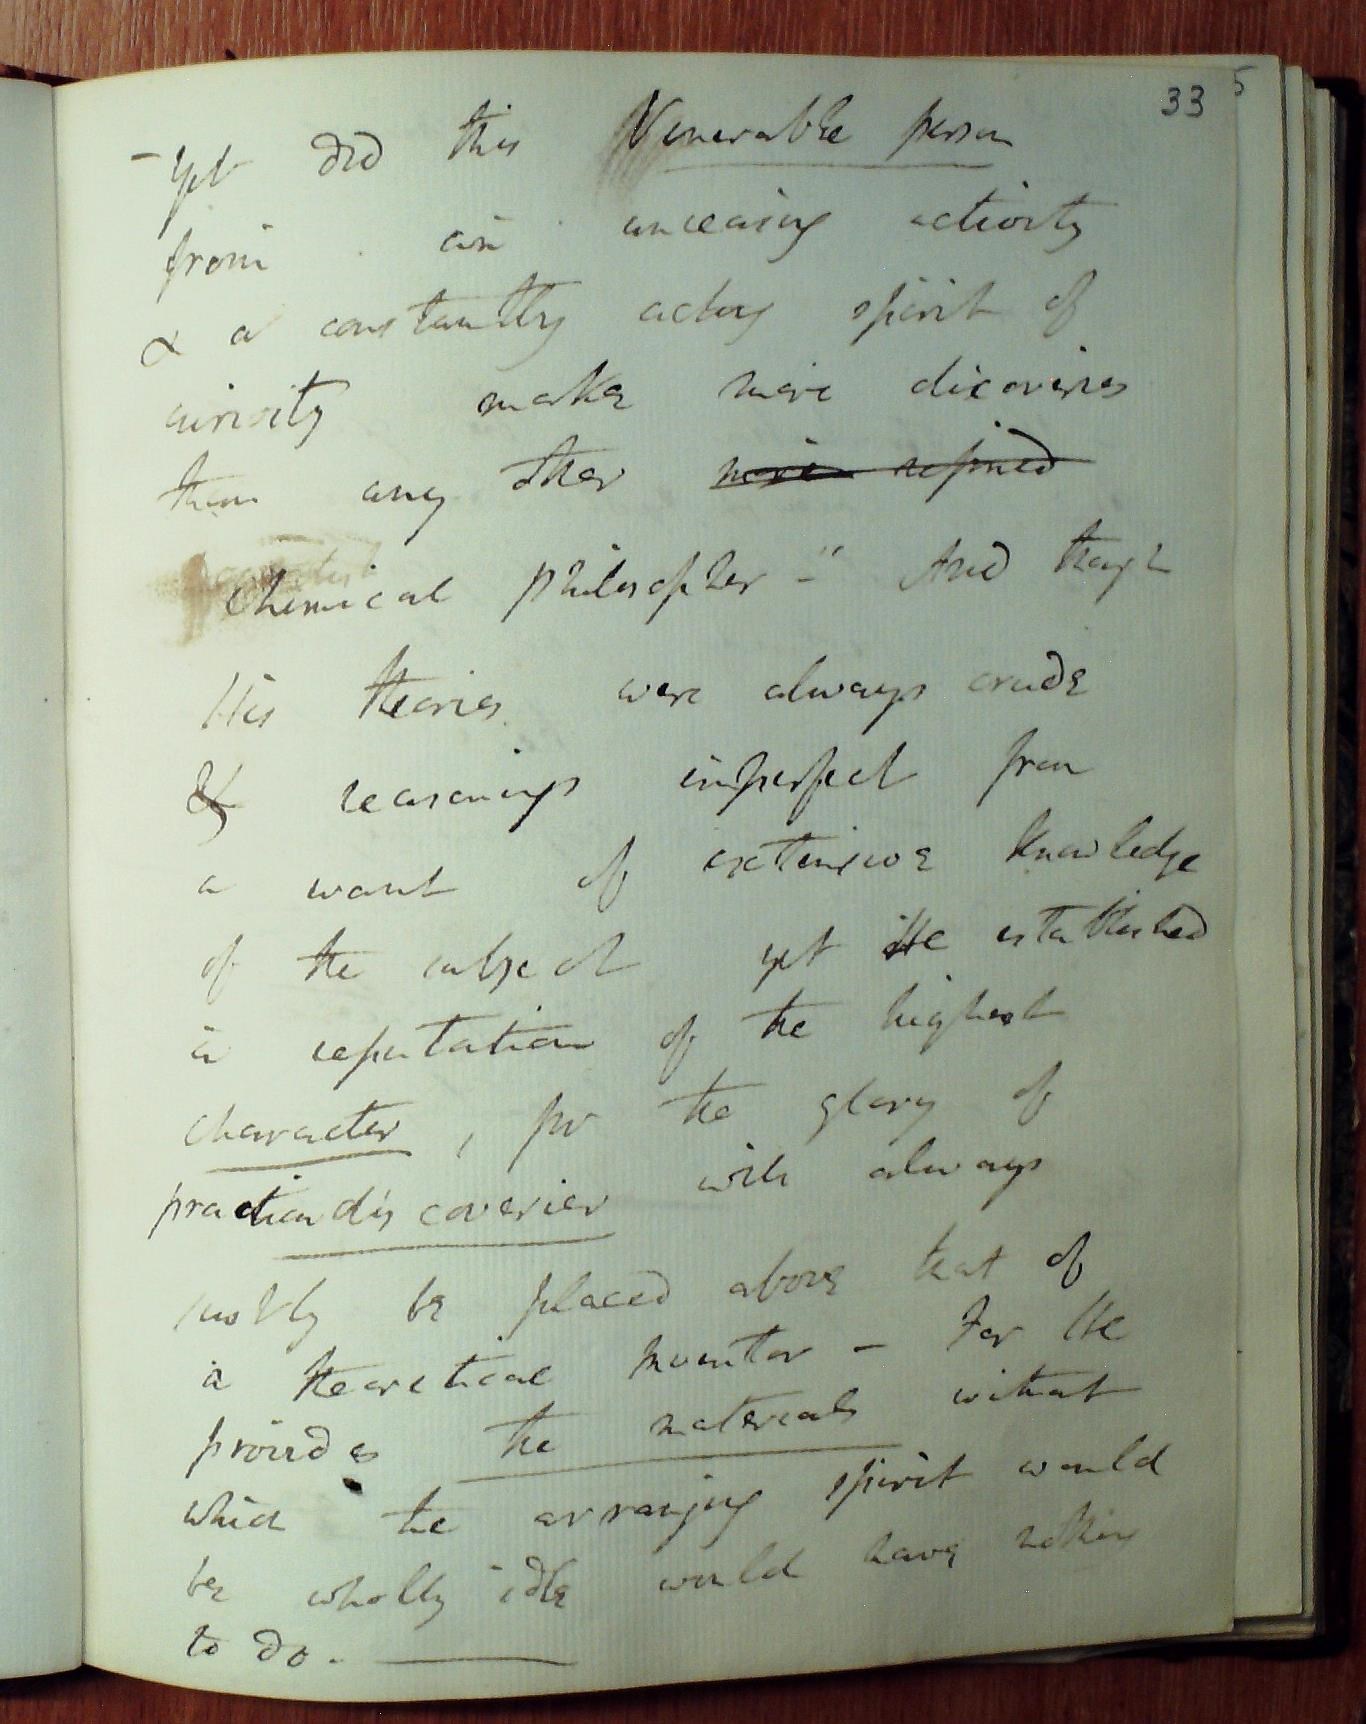 33
5
- Yet did this Venerable person
from an unceasing activity
& a constantly acting spirit of
curiosity make more discoveries
than any other more refined
Chemical philosopher –" And though
His theories were always crude
& reasonings imperfect from
a want of extensive knowledge
of the subject yet He established
a reputation of the highest
character, for the glory of
discoverier will always
be placed above that of
a theoretical inventor – For He
provides the materials without
which the arranging spirit would
be wholly idle would have nothing
to do. —